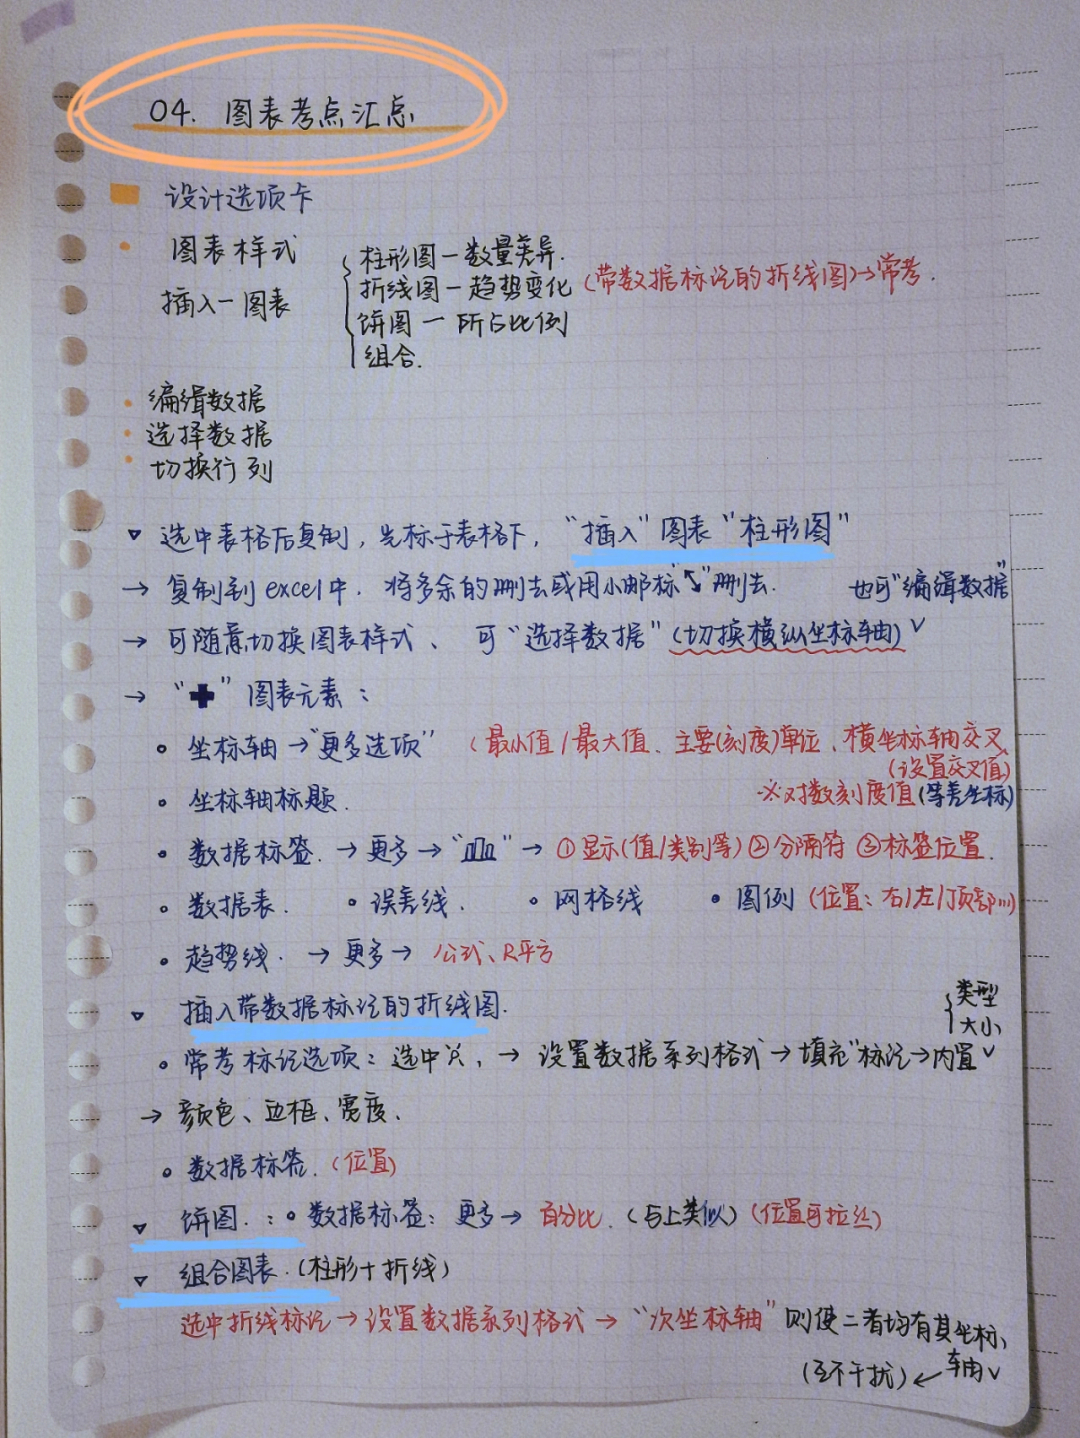 04. 图表考点汇总
设计选项卡
图表样式
插入一图表
柱形图一数量差异.
折线图一趋势变化 (带数据标记的折线图)→常考.
饼图一所占比例
组合.
编缉数据
选择数据
切换行列
▽ 选中表格后复制，光标于表格下，“插入”图表“柱形图”
→ 复制到excel中. 将多余的删去或用小邮标“↖↘”删去. 也可“编缉数据”
→ 可随意切换图表样式、可“选择数据”(切换横纵坐标轴)✓
→ “✚”图表元素：
坐标轴→“更多选项” (最小值/最大值、主要(刻度)单位、横坐标轴交叉
(设置交叉值)
※对数刻度值(等差坐标)
坐标轴标题.
数据标签. →更多→“”→ ①显示(值/类别等)②分隔符 ③标签位置.
数据表. 误差线. 网格线 图例 (位置：右/左/顶部…)
趋势线. →更多→ 公式、R平方
▽ 插入带数据标记的折线图.
常考标记选项：选中, → 设置数据系列格式→填充“标记→内置✓
类型
大小
→ 颜色、边框、宽度.
数据标签. (位置)
▽ 饼图. ：数据标签：更多→ 百分比. (与上类似) (位置可拉丝)
▽ 组合图表. (柱形+折线)
选中折线标记→设置数据系列格式→“次坐标轴” 则使二者均有其坐标
轴✓
(互不干扰)←